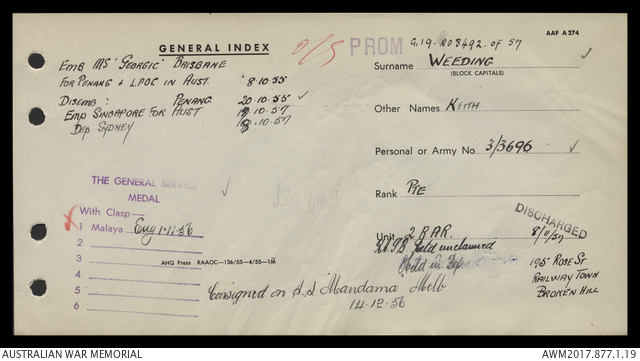 AAF A 274
GENERAL INDEX
PROM G.19. RO 8492. OF 57
EMB MS 'GEORGIC' BRISBANE
FOR PENANG & L.P.O.C IN AUST. 8.10.55
DISEMB: PENANG 20.10.55 ✓
EMB SINGAPORE FOR AUST 10.57
DEP SYDNEY .10.57
Surname WEEDING ✓
(BLOCK CAPITALS)
Other Names KEITH
Personal or Army No 3/3696 ✓
Rank PTE
Unit 2 RAR.
DISCHARGED
8/11/57
195 ROSE ST
RAILWAY TOWN
BROKEN HILL
unclaimed
Held in
THE GENERAL SERVICE
MEDAL
With Clasp—
1 Malaya Eng 1.11.56
2
3
4
5
6
AHQ Press RAAOC—136/55—4/55—1M
Consigned on S.S Mandama Melb
14.12.56
AUSTRALIAN WAR MEMORIAL
AWM2017.877.1.19